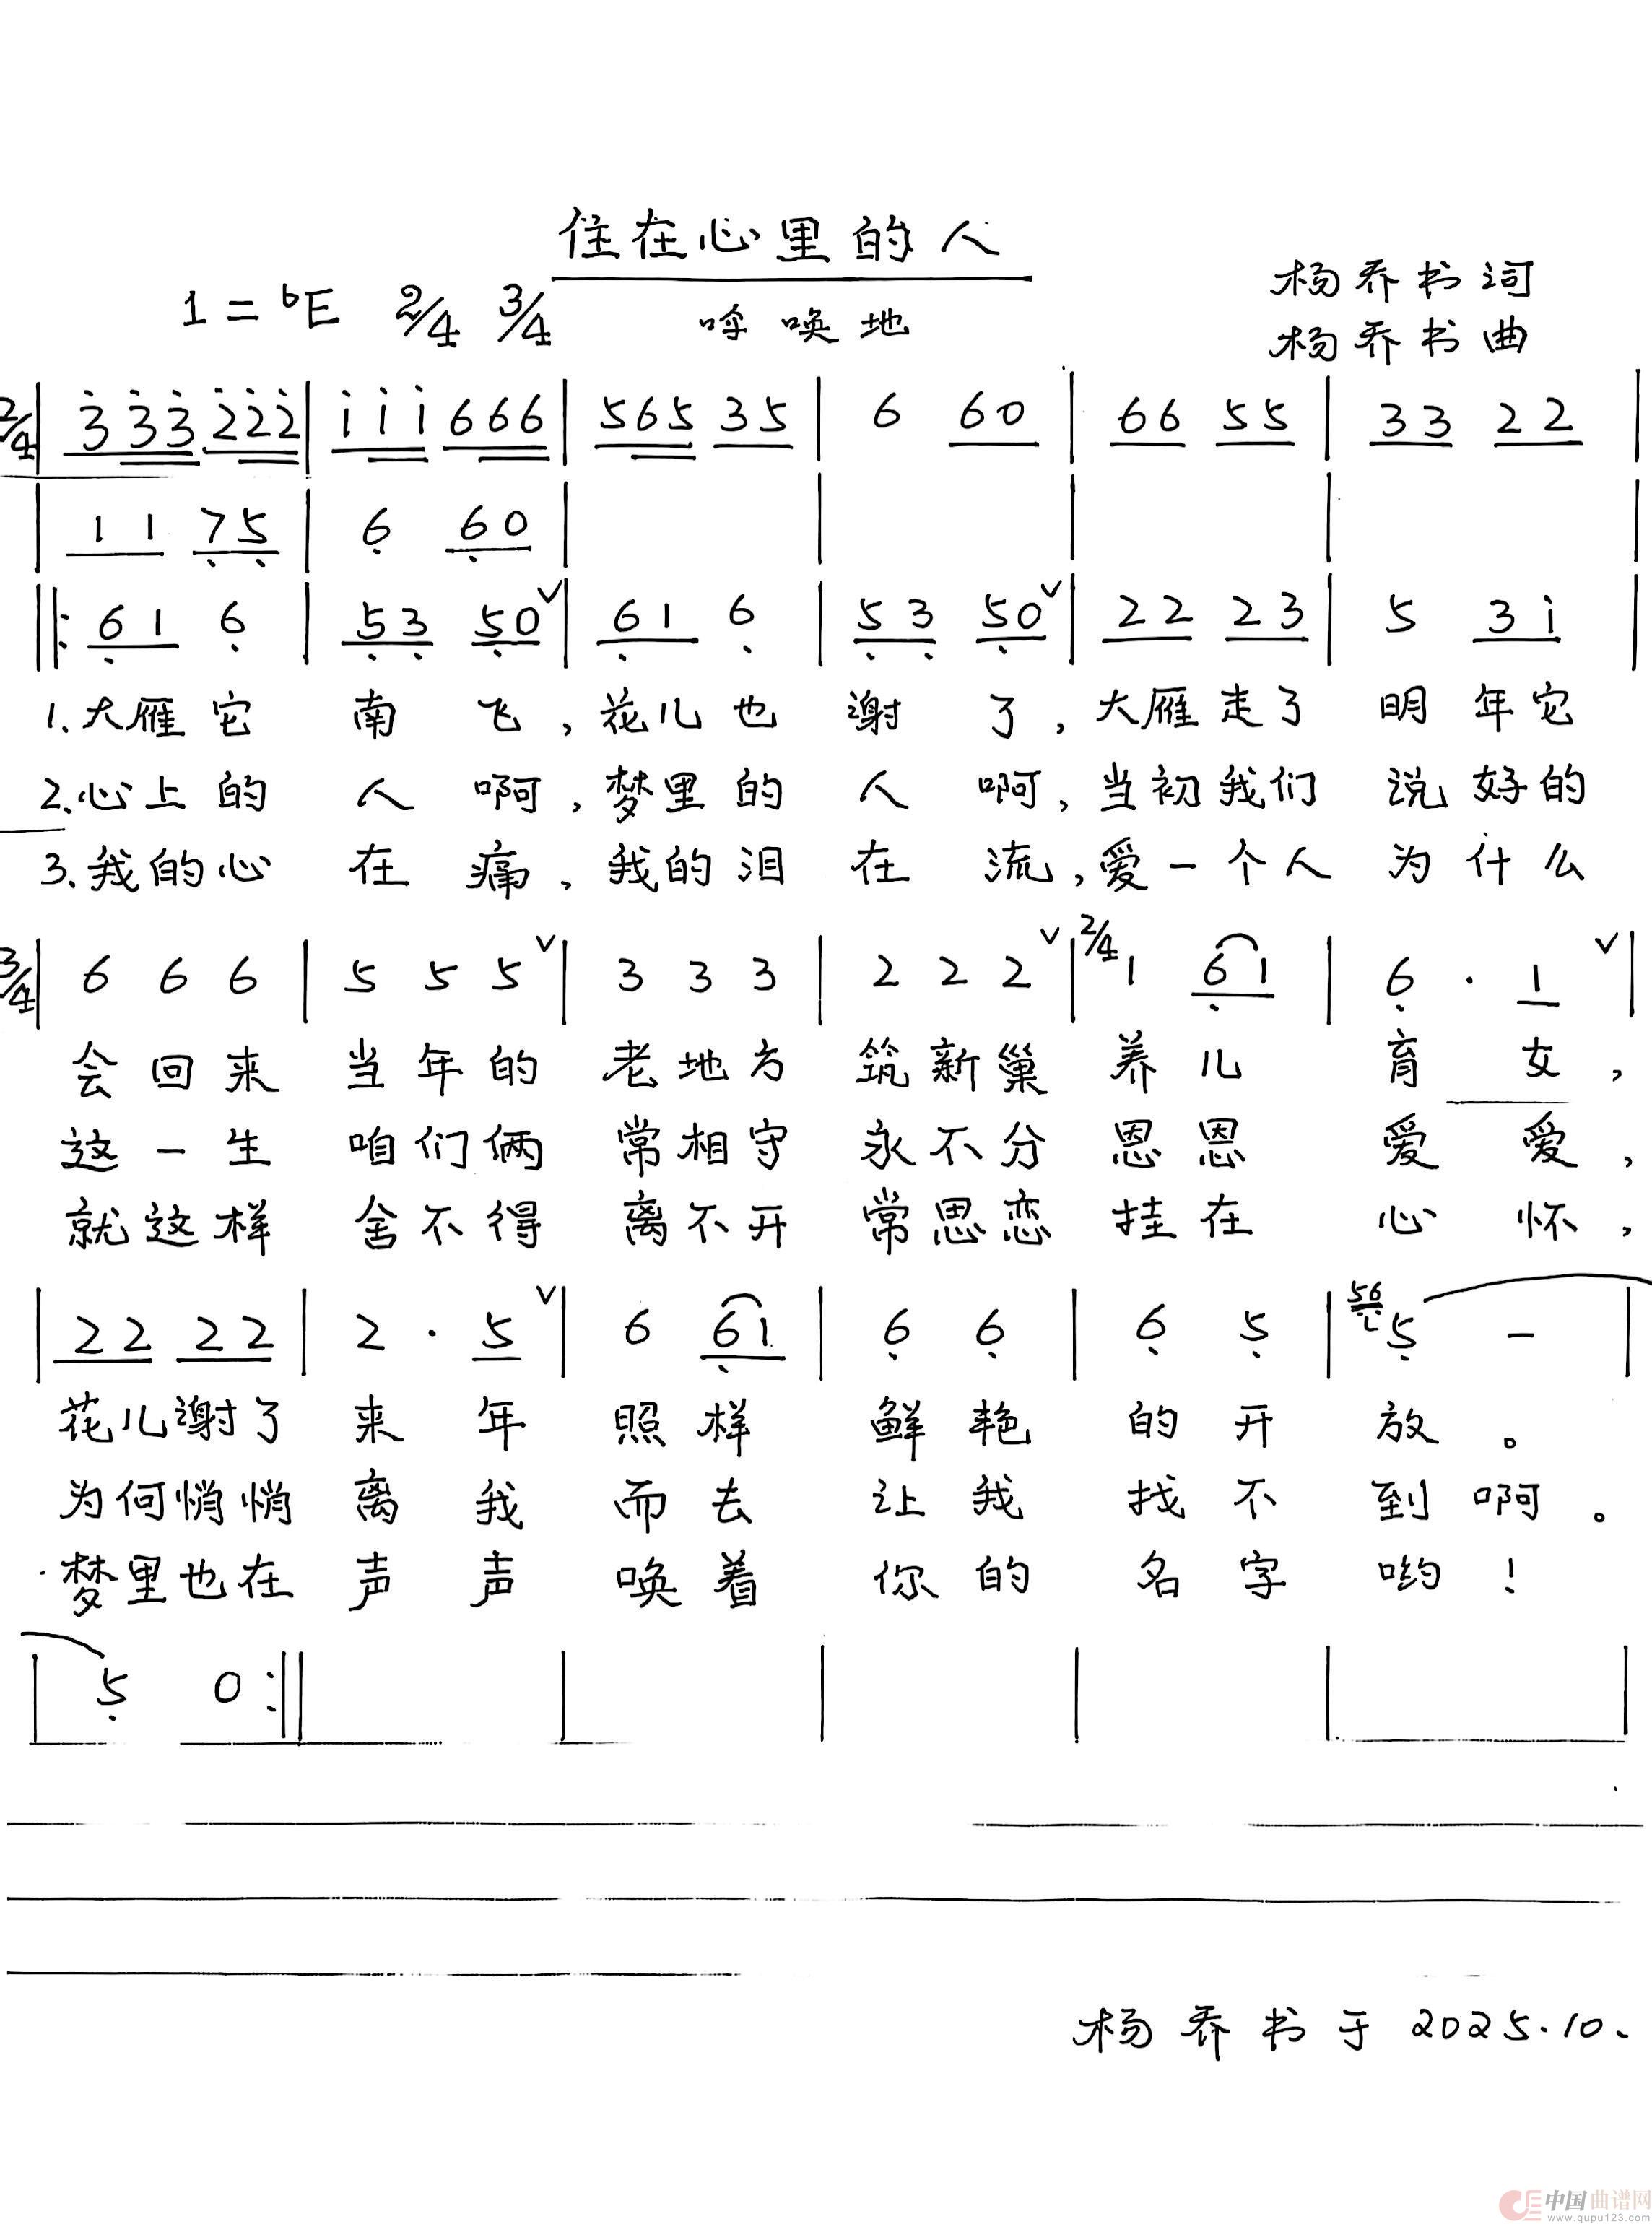 住在心里的人
1=♭E 2/4 3/4 呼唤地
杨乔书词
杨乔书曲
2/4 | 3̇3̇3̇ 2̇2̇2̇ | 1̇1̇1̇ 666 | 565 35 | 6 60 | 66 55 | 33 22 |
| 11 7̣5̣ | 6̣ 6̣0 |
‖: 6̣1 6̣ | 5̣3̣ 5̣0 ∨ | 6̣1 6̣ | 5̣3̣ 5̣0 ∨ | 22 23 | 5 31̇ |
1.大雁它 南 飞,花儿也 谢 了,大雁走了 明年它
2.心上的 人 啊,梦里的 人 啊,当初我们 说好的
3.我的心 在 痛,我的泪 在 流,爱一个人 为什么
3/4 | 6 6 6 | 5 5 5 ∨ | 3 3 3 | 2 2 2 ∨ | 2/4 1 6̣1 | 6̣ · 1 ∨ |
会回来 当年的 老地方 筑新巢 养儿 育女,
这一生 咱们俩 常相守 永不分 恩恩 爱爱,
就这样 舍不得 离不开 常思恋 挂在 心怀,
| 22 22 | 2 · 5 ∨ | 6 6̣1 | 6̣ 6̣ | 6̣ 5̣ | 5̣6̣ 5̣ – |
花儿谢了 来年 照样 鲜艳 的开 放。
为何悄悄 离我 而去 让我 找不 到啊。
梦里也在 声声 唤着 你的 名字 哟!
| 5̣ 0 :‖
杨乔书于2025.10.
中国曲谱网
www.qupu123.com